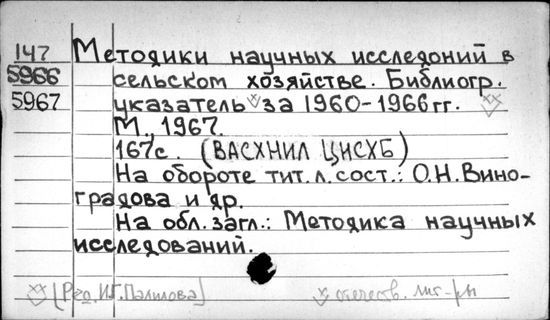 147
5966
5967
Методики научных исследоний в
сельском хозяйстве. Библиогр.
указатель за 1960-1966 гг.
М., 1967.
167с. (ВАСХНИЛ ЦНСХБ)
На обороте тит. л. сост.: О.Н. Вино-
градова и др.
На обл. загл.: Методика научных
исследований.
[Ред. И.Г. Палилова]
отечеств. лит-ры